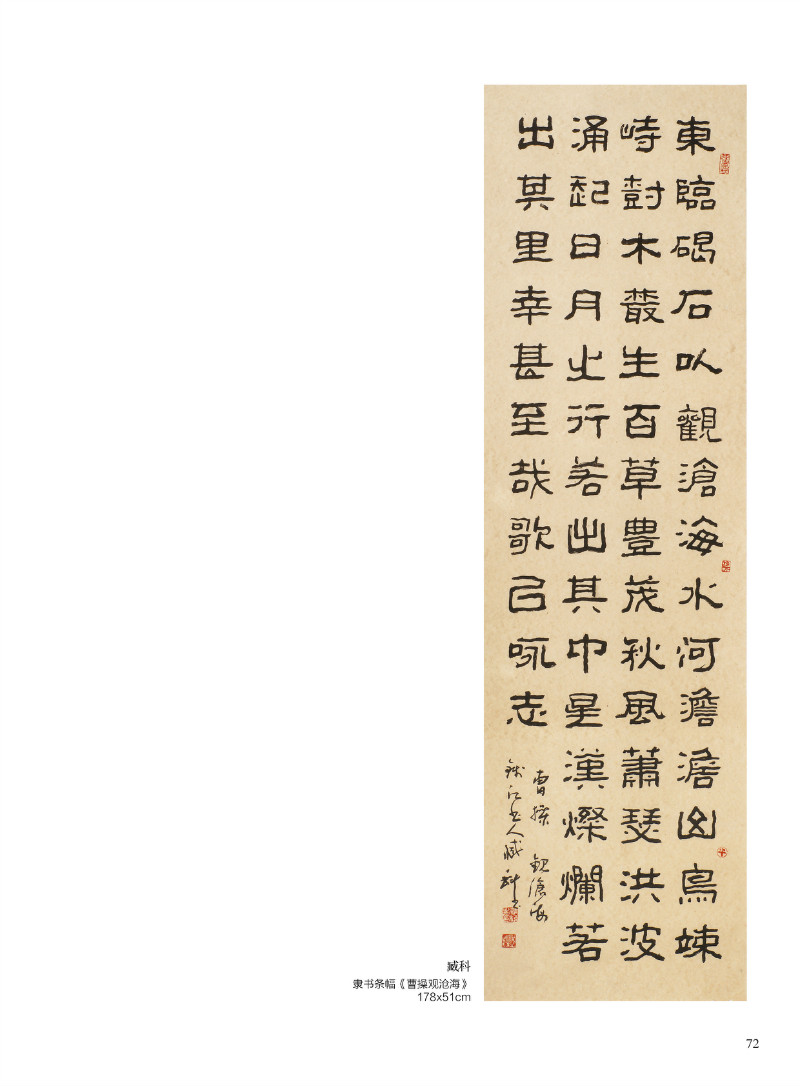 東臨碣石㕥觀滄海水河澹澹山島竦
峙樹木叢生百草豐茂秋風蕭瑟洪波
涌起日月之行若出其中星漢燦爛若
出其里幸甚至哉歌㠯咏志
曹操 觀滄海
錢江书人臧科书
臧科
隶书条幅《曹操观沧海》
178x51cm
72